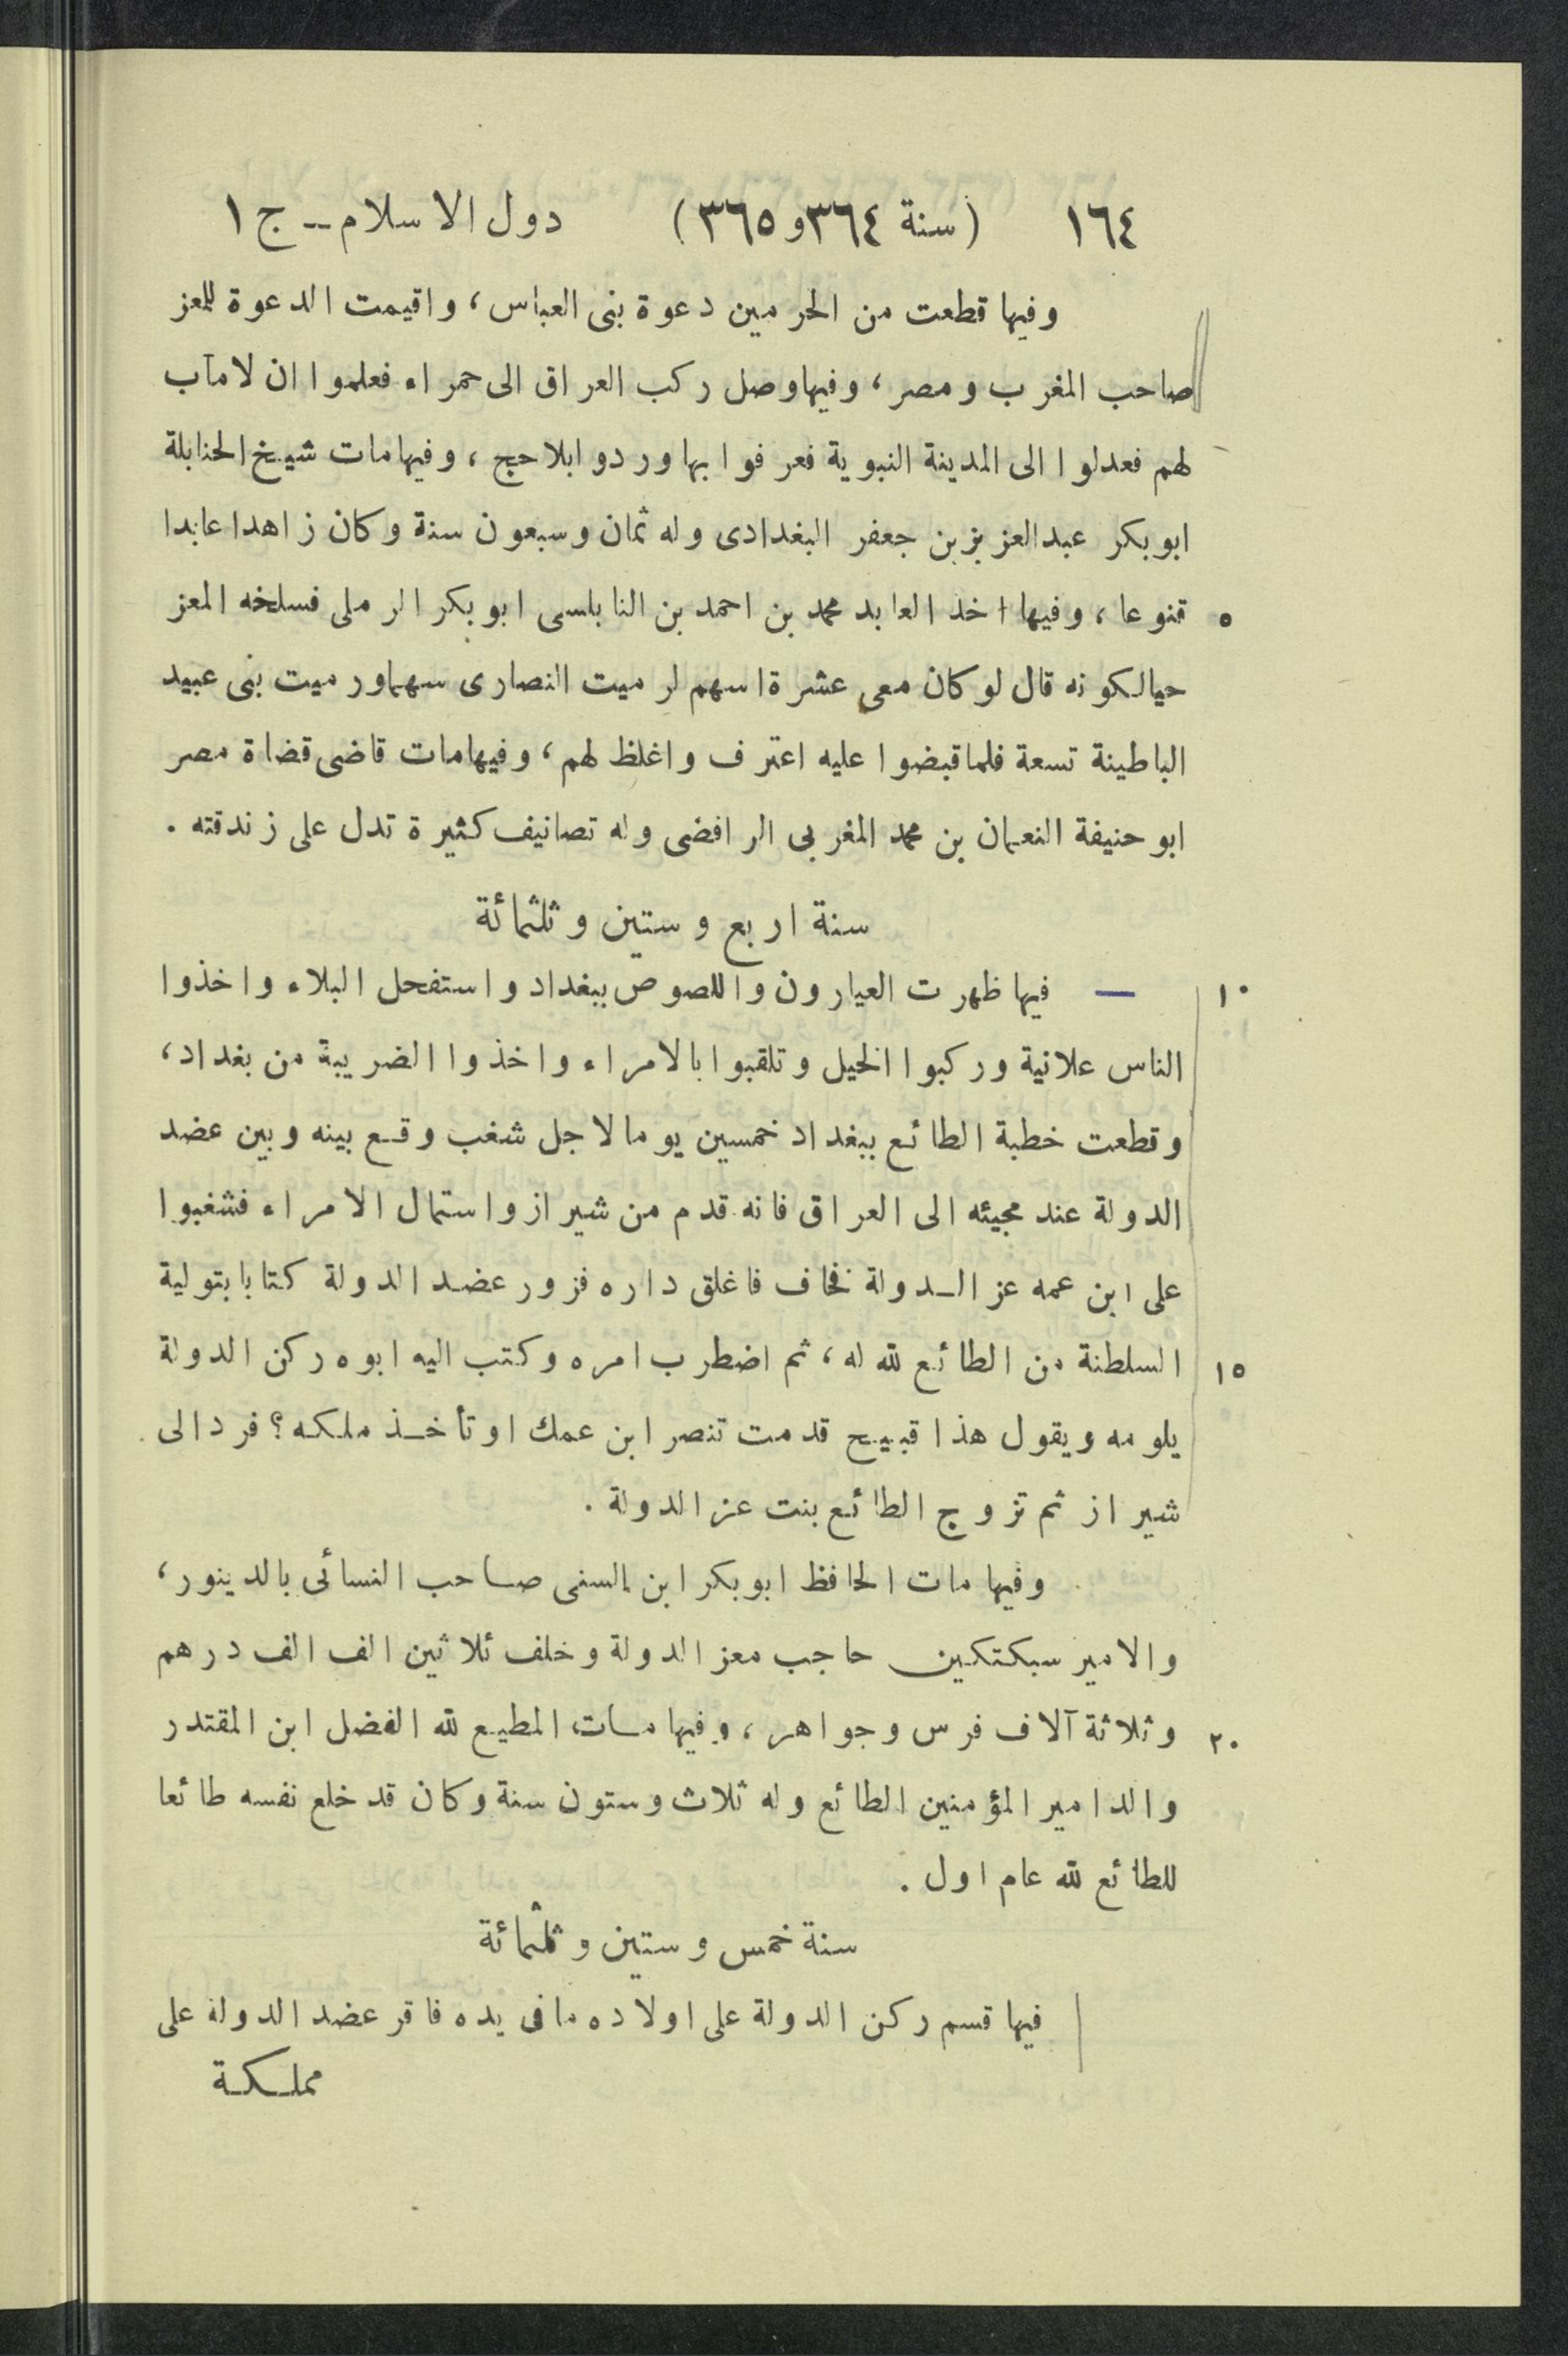 ١٦٤ (سنة ٣٦٤ و ٣٦٥) دول الاسلام ــ ج ١
وفيها قطعت من الحرمين دعوة بنى العباس، واقيمت الدعوة للمعز
صاحب المغرب ومصر، وفيها وصل ركب العراق الى حمراء فعلموا ان لا مآب
لهم فعدلوا الى المدينة النبوية فعرفوا بها وردوا بلا حج، وفيها مات شيخ الحنابلة
ابو بكر عبد العزيز بن جعفر البغدادى وله ثمان وسبعون سنة وكان زاهدا عابدا
٥ قنوعا، وفيها اخذ العابد محمد بن احمد بن النابلسى ابو بكر الرملى فسلخه المعز
حيا لكونه قال لو كان معى عشرة اسهم لرميت النصارى سهما ورميت بنى عبيد
الباطينة تسعة فلما قبضوا عليه اعترف واغلظ لهم، وفيها مات قاضى قضاة مصر
ابو حنيفة النعمان بن محمد المغربى الرافضى وله تصانيف كثيرة تدل على زندقته .
سنة اربع وستين وثلثمائة
١٠ — فيها ظهرت العيارون واللصوص ببغداد واستفحل البلاء واخذوا
الناس علانية وركبوا الخيل وتلقبوا بالامراء واخذوا الضريبة من بغداد،
وقطعت خطبة الطائع ببغداد خمسين يوما لاجل شغب وقع بينه وبين عضد
الدولة عند مجيئه الى العراق فانه قدم من شيراز واستمال الامراء فشغبوا
على ابن عمه عز الدولة فخاف فاغلق داره فزور عضد الدولة كتابا بتولية
١٥ السلطنة من الطائع لله له، ثم اضطرب امره وكتب اليه ابوه ركن الدولة
يلومه ويقول هذا قبيح قدمت تنصر ابن عمك او تأخذ ملكه؟ فرد الى
شيراز ثم تزوج الطائع بنت عز الدولة .
وفيها مات الحافظ ابو بكر ابن السنى صاحب النسائى بالدينور،
والامير سبكتكين حاجب معز الدولة وخلف ثلاثين الف الف درهم
٢٠ وثلاثة آلاف فرس وجواهر، وفيها مات المطيع لله الفضل ابن المقتدر
والد امير المؤمنين الطائع وله ثلاث وستون سنة وكان قد خلع نفسه طائعا
للطائع لله عام اول .
سنة خمس وستين وثلثمائة
فيها قسم ركن الدولة على اولاده ما فى يده فاقر عضد الدولة على
مملكة